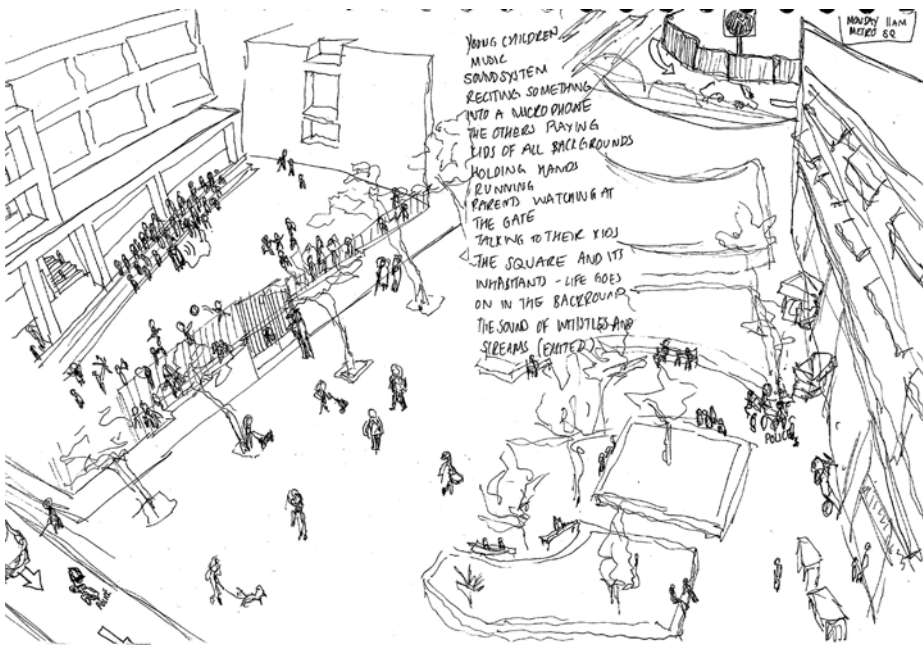 MONDAY 11AM
METRO SQ
YOUNG CHILDREN
MUSIC
SOUNDSYSTEM
RECITING SOMETHING
INTO A MICROPHONE
THE OTHERS PLAYING
KIDS OF ALL BACKGROUNDS
HOLDING HANDS
RUNNING
PARENTS WATCHING AT
THE GATE
TALKING TO THEIR KIDS
THE SQUARE AND ITS
INHABITANTS - LIFE GOES
ON IN THE BACKROUND
THE SOUND OF WHISTLES AND
SCREAMS (EXCITED)
POLICE